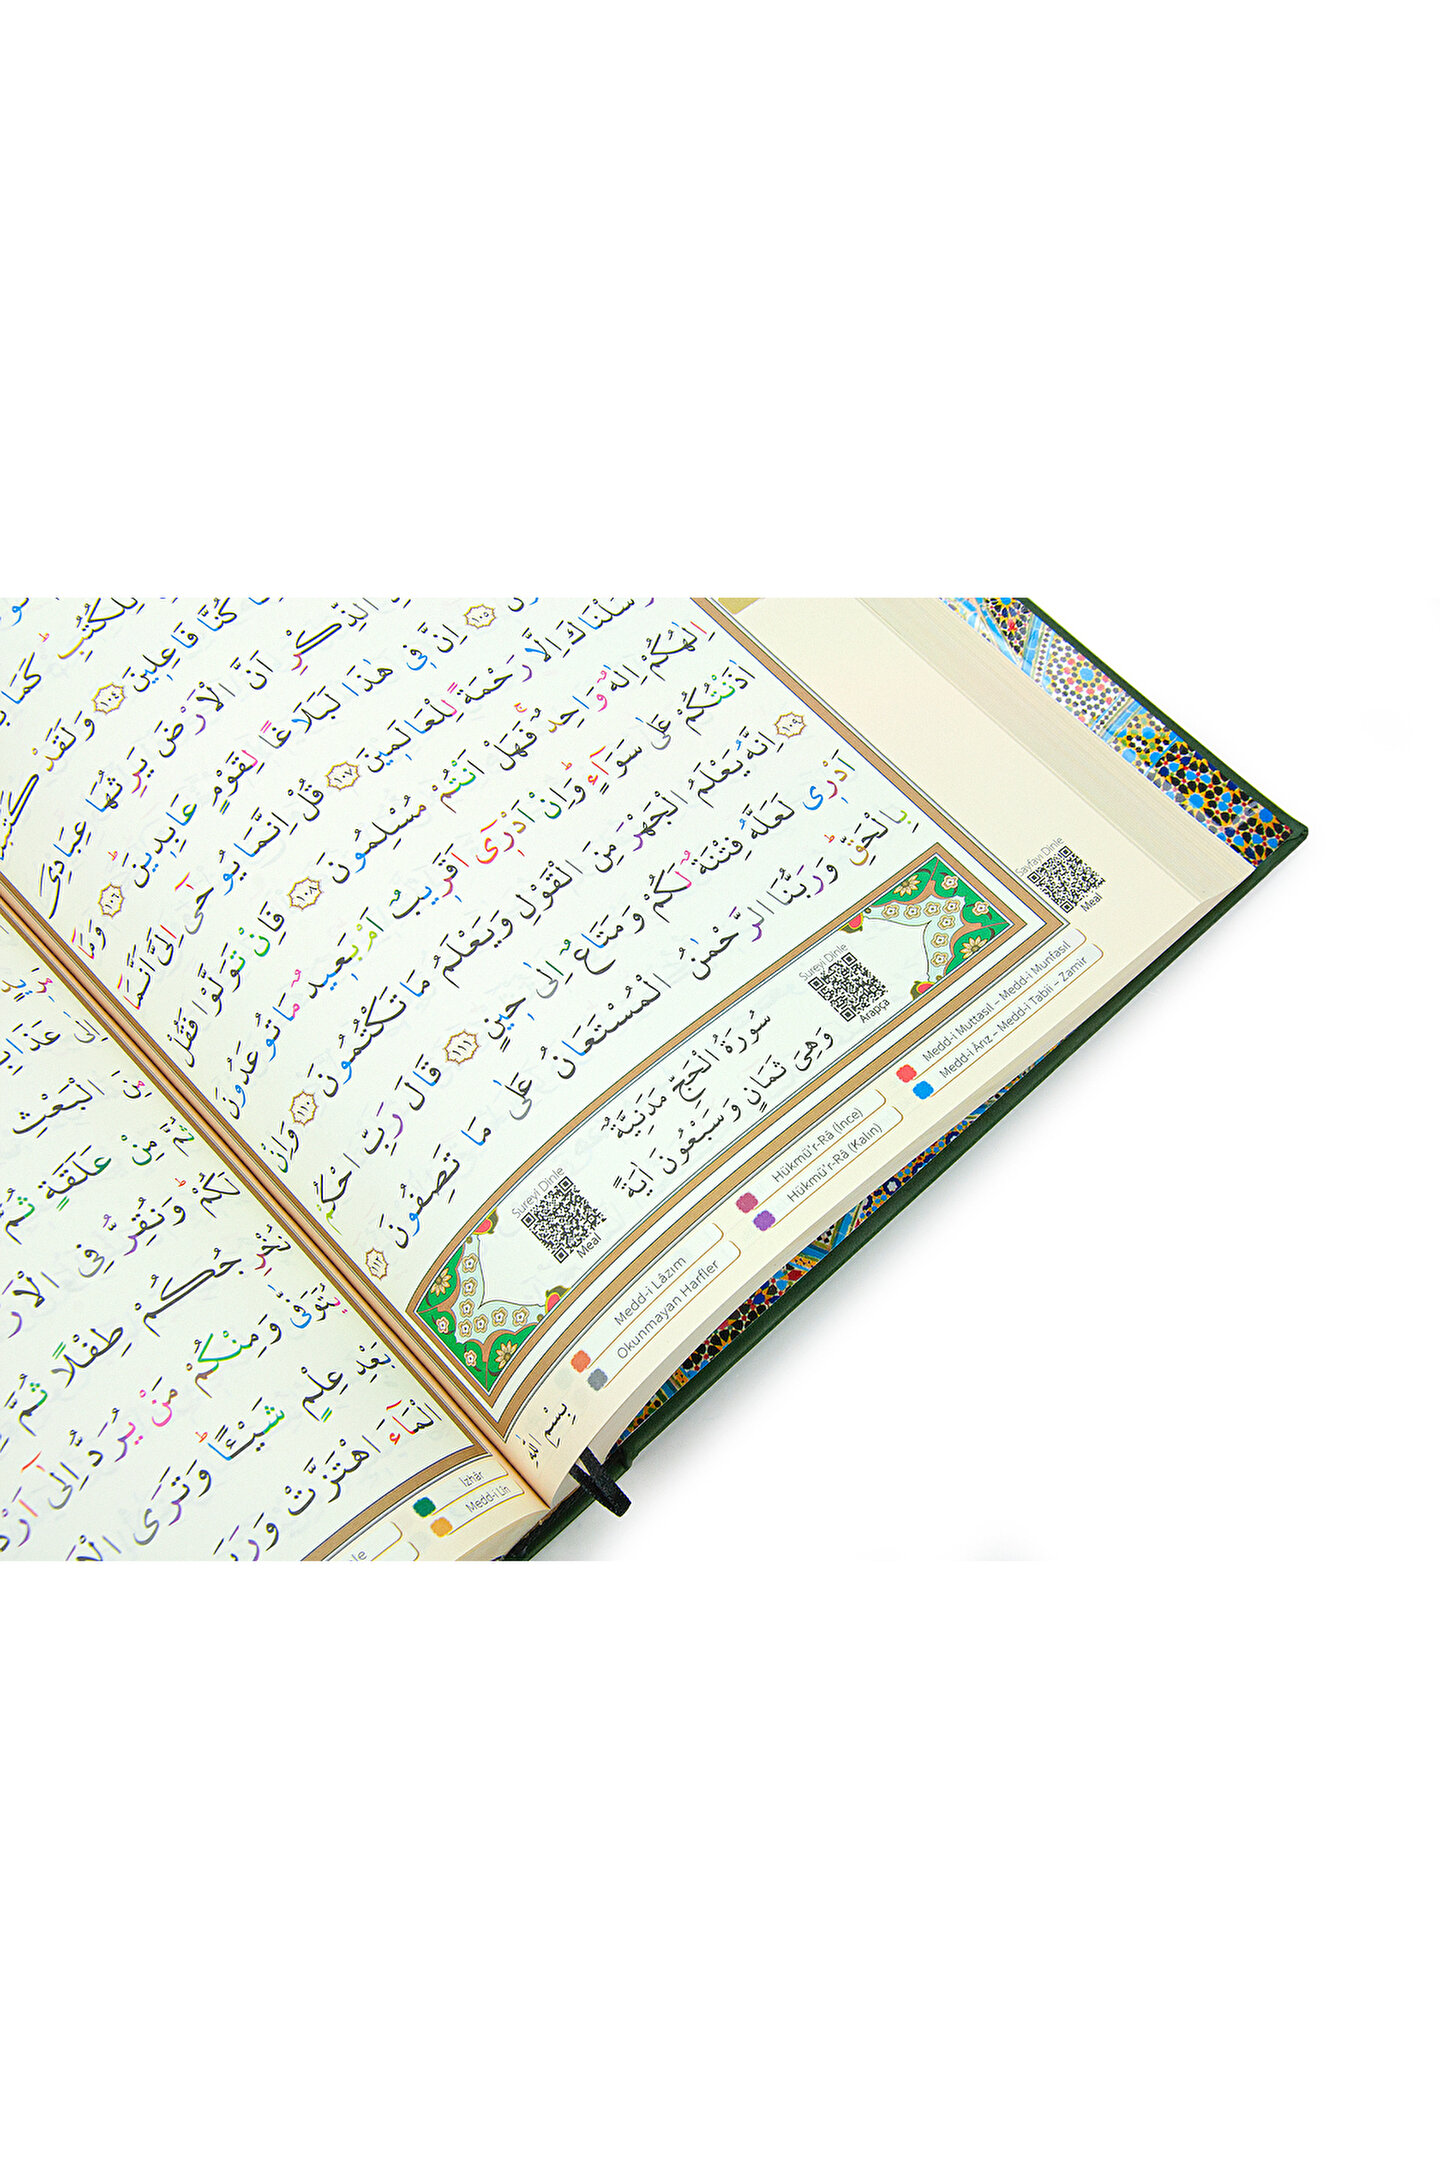 لِلْكُتُبِ
كُنَّا فَاعِلِينَ ١٠٤ وَلَقَدْ
الذِّكْرِ اَنَّ الْاَرْضَ يَرِثُهَا عِبَادِىَ
١٠٥ اِنَّ فِى هٰذَا لَبَلَاغًا لِقَوْمٍ عَابِدِينَ ١٠٦ وَمَٓا
اِلَّا رَحْمَةً لِلْعَالَمِينَ ١٠٧ قُلْ اِنَّمَا يُوحٰٓى اِلَىَّ اَنَّمَٓا
اِلٰهُكُمْ اِلٰهٌ وَاحِدٌ فَهَلْ اَنْتُمْ مُسْلِمُونَ ١٠٨ فَاِنْ تَوَلَّوْا فَقُلْ
اٰذَنْتُكُمْ عَلٰى سَوَٓاءٍ وَاِنْ اَدْرٖٓى اَقَرِيبٌ اَمْ بَعِيدٌ مَا تُوعَدُونَ
١٠٩ اِنَّهُ يَعْلَمُ الْجَهْرَ مِنَ الْقَوْلِ وَيَعْلَمُ مَا تَكْتُمُونَ ١١٠ وَاِنْ
اَدْرٖى لَعَلَّهُ فِتْنَةٌ لَكُمْ وَمَتَاعٌ اِلٰى حِينٍ ١١١ قَالَ رَبِّ احْكُمْ
بِالْحَقِّ وَرَبُّنَا الرَّحْمٰنُ الْمُسْتَعَانُ عَلٰى مَا تَصِفُونَ ١١٢
سُورَةُ الْحَجِّ مَدَنِيَّةٌ
وَهِىَ ثَمَانٍ وَسَبْعُونَ اٰيَةً
Sureyi Dinle
Arapça
Sureyi Dinle
Meal
Sayfayı Dinle
Meal
Medd-i Muttasıl - Medd-i Munfasıl
Medd-i Ârız - Medd-i Tabii - Zamir
Hükmü'r-Râ (İnce)
Hükmü'r-Râ (Kalın)
Medd-i Lâzım
Okunmayan Harfler
بِسْمِ اللّٰهِ
مَرِيدٍ
اِلٰى عَذَابِ
مِنَ الْبَعْثِ
ثُمَّ مِنْ عَلَقَةٍ ثُمَّ
لَكُمْ وَنُقِرُّ فِى
نُخْرِجُكُمْ طِفْلًا ثُمَّ
يُتَوَفّٰى وَمِنْكُمْ مَنْ يُرَدُّ اِلٰٓى
بَعْدِ عِلْمٍ شَيْئًا وَتَرَى
الْمَٓاءَ اهْتَزَّتْ
İzhâr
Medd-i Lîn